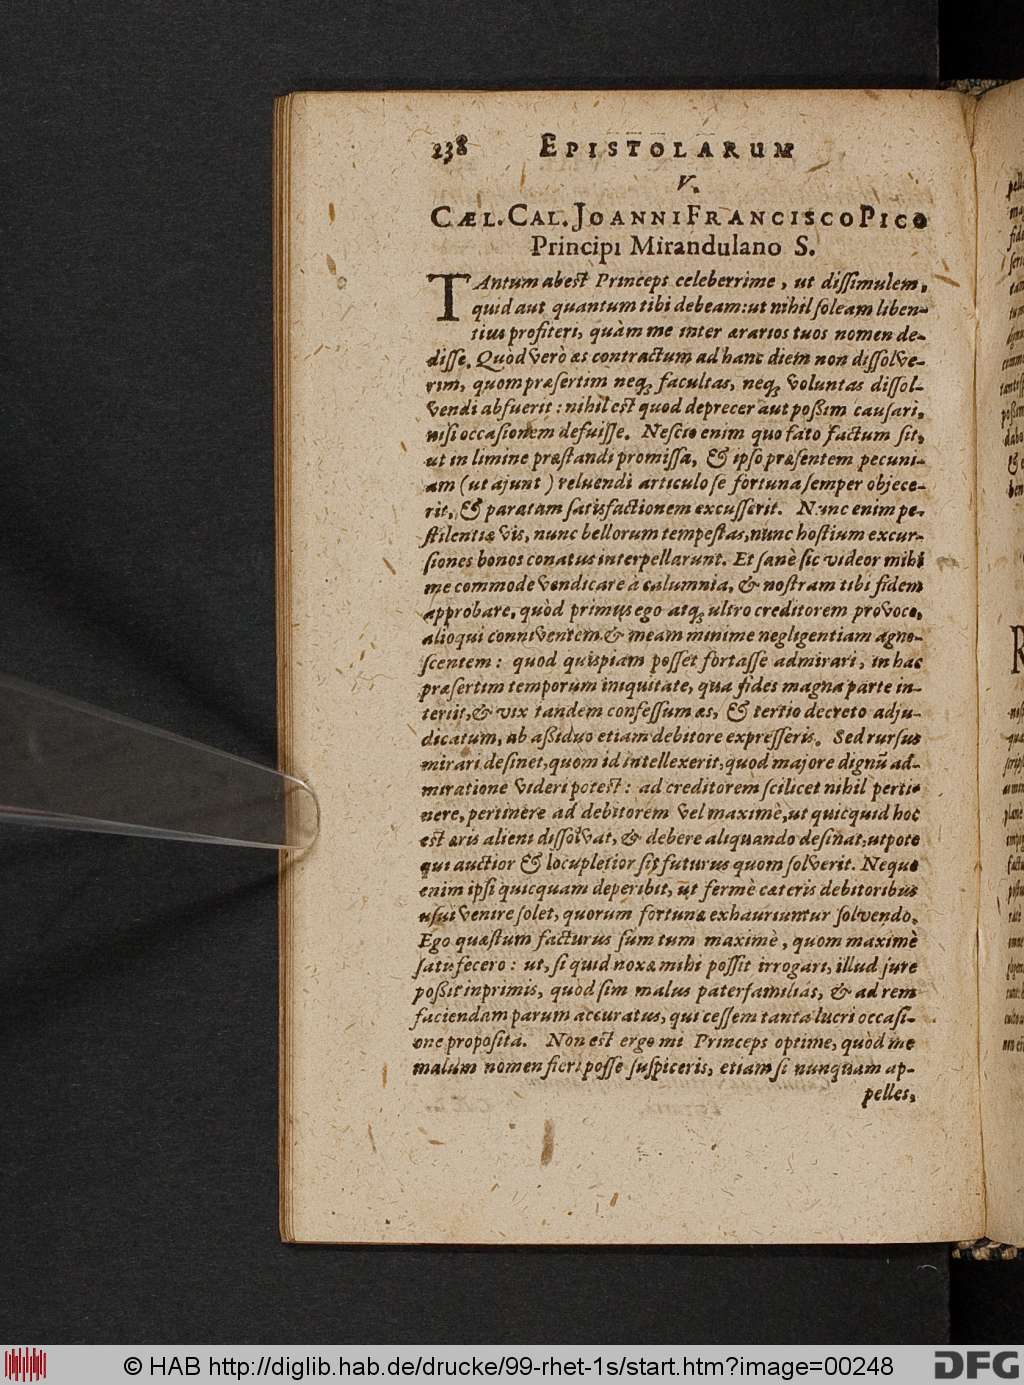 238 EPISTOLARUM
V.
CÆL. CAL. JOANNI FRANCISCO PICO
Principi Mirandulano S.
TAntum abest Princeps celeberrime, ut dissimulem,
quid aut quantum tibi debeam: ut nihil soleam liben-
tius profiteri, quàm me inter ararios tuos nomen de-
disse. Quòd verò æs contractum ad hanc diem non dissolve-
rim, quom præsertim neq; facultas, neq; voluntas dissol-
vendi abfuerit: nihil est quod deprecer aut poßim causari,
nisi occasionem defuisse. Nescio enim quo fato factum sit,
ut in limine præstandi promissa, & ipso præsentem pecuni-
am (ut ajunt) reluendi articulo se fortuna semper objece-
rit, & paratam satisfactionem excusserit. Nunc enim pe-
stilentiæ vis, nunc bellorum tempestas, nunc hostium excur-
siones bonos conatus interpellarunt. Et sanè sic videor mihi
me commode vendicare à calumnia, & nostram tibi fidem
approbare, quòd primus ego atq; ultro creditorem provoco,
alioqui conniventem & meam minime negligentiam agno-
scentem: quod quispiam posset fortasse admirari, in hac
præsertim temporum iniquitate, qua fides magna parte in-
teriit, & vix tandem confessum æs, & tertio decreto adju-
dicatum, ab aßiduo etiam debitore expresseris. Sed rursus
mirari desinet, quom id intellexerit, quod majore dignū ad-
miratione videri potest: ad creditorem scilicet nihil perti-
nere, pertinere ad debitorem vel maximè, ut quicquid hoc
est æris alieni dissolvat, & debere aliquando desinat, utpote
qui auctior & locupletior sit futurus quom solverit. Neque
enim ipsi quicquam deperibit, ut fermè cæteris debitoribus
usui venire solet, quorum fortunæ exhauriuntur solvendo.
Ego quæstum facturus sum tum maximè, quom maximè
satisfecero: ut, si quid noxæ mihi possit irrogari, illud jure
poßit inprimis, quòd sim malus paterfamiliâs, & ad rem
faciendam parum accuratus, qui cessem tanta lucri occasi-
one proposita. Non est ergo mi Princeps optime, quòd me
malum nomen fieri posse suspiceris, etiam si nunquam ap-
pelles,
© HAB http://diglib.hab.de/drucke/99-rhet-1s/start.htm?image=00248
DFG